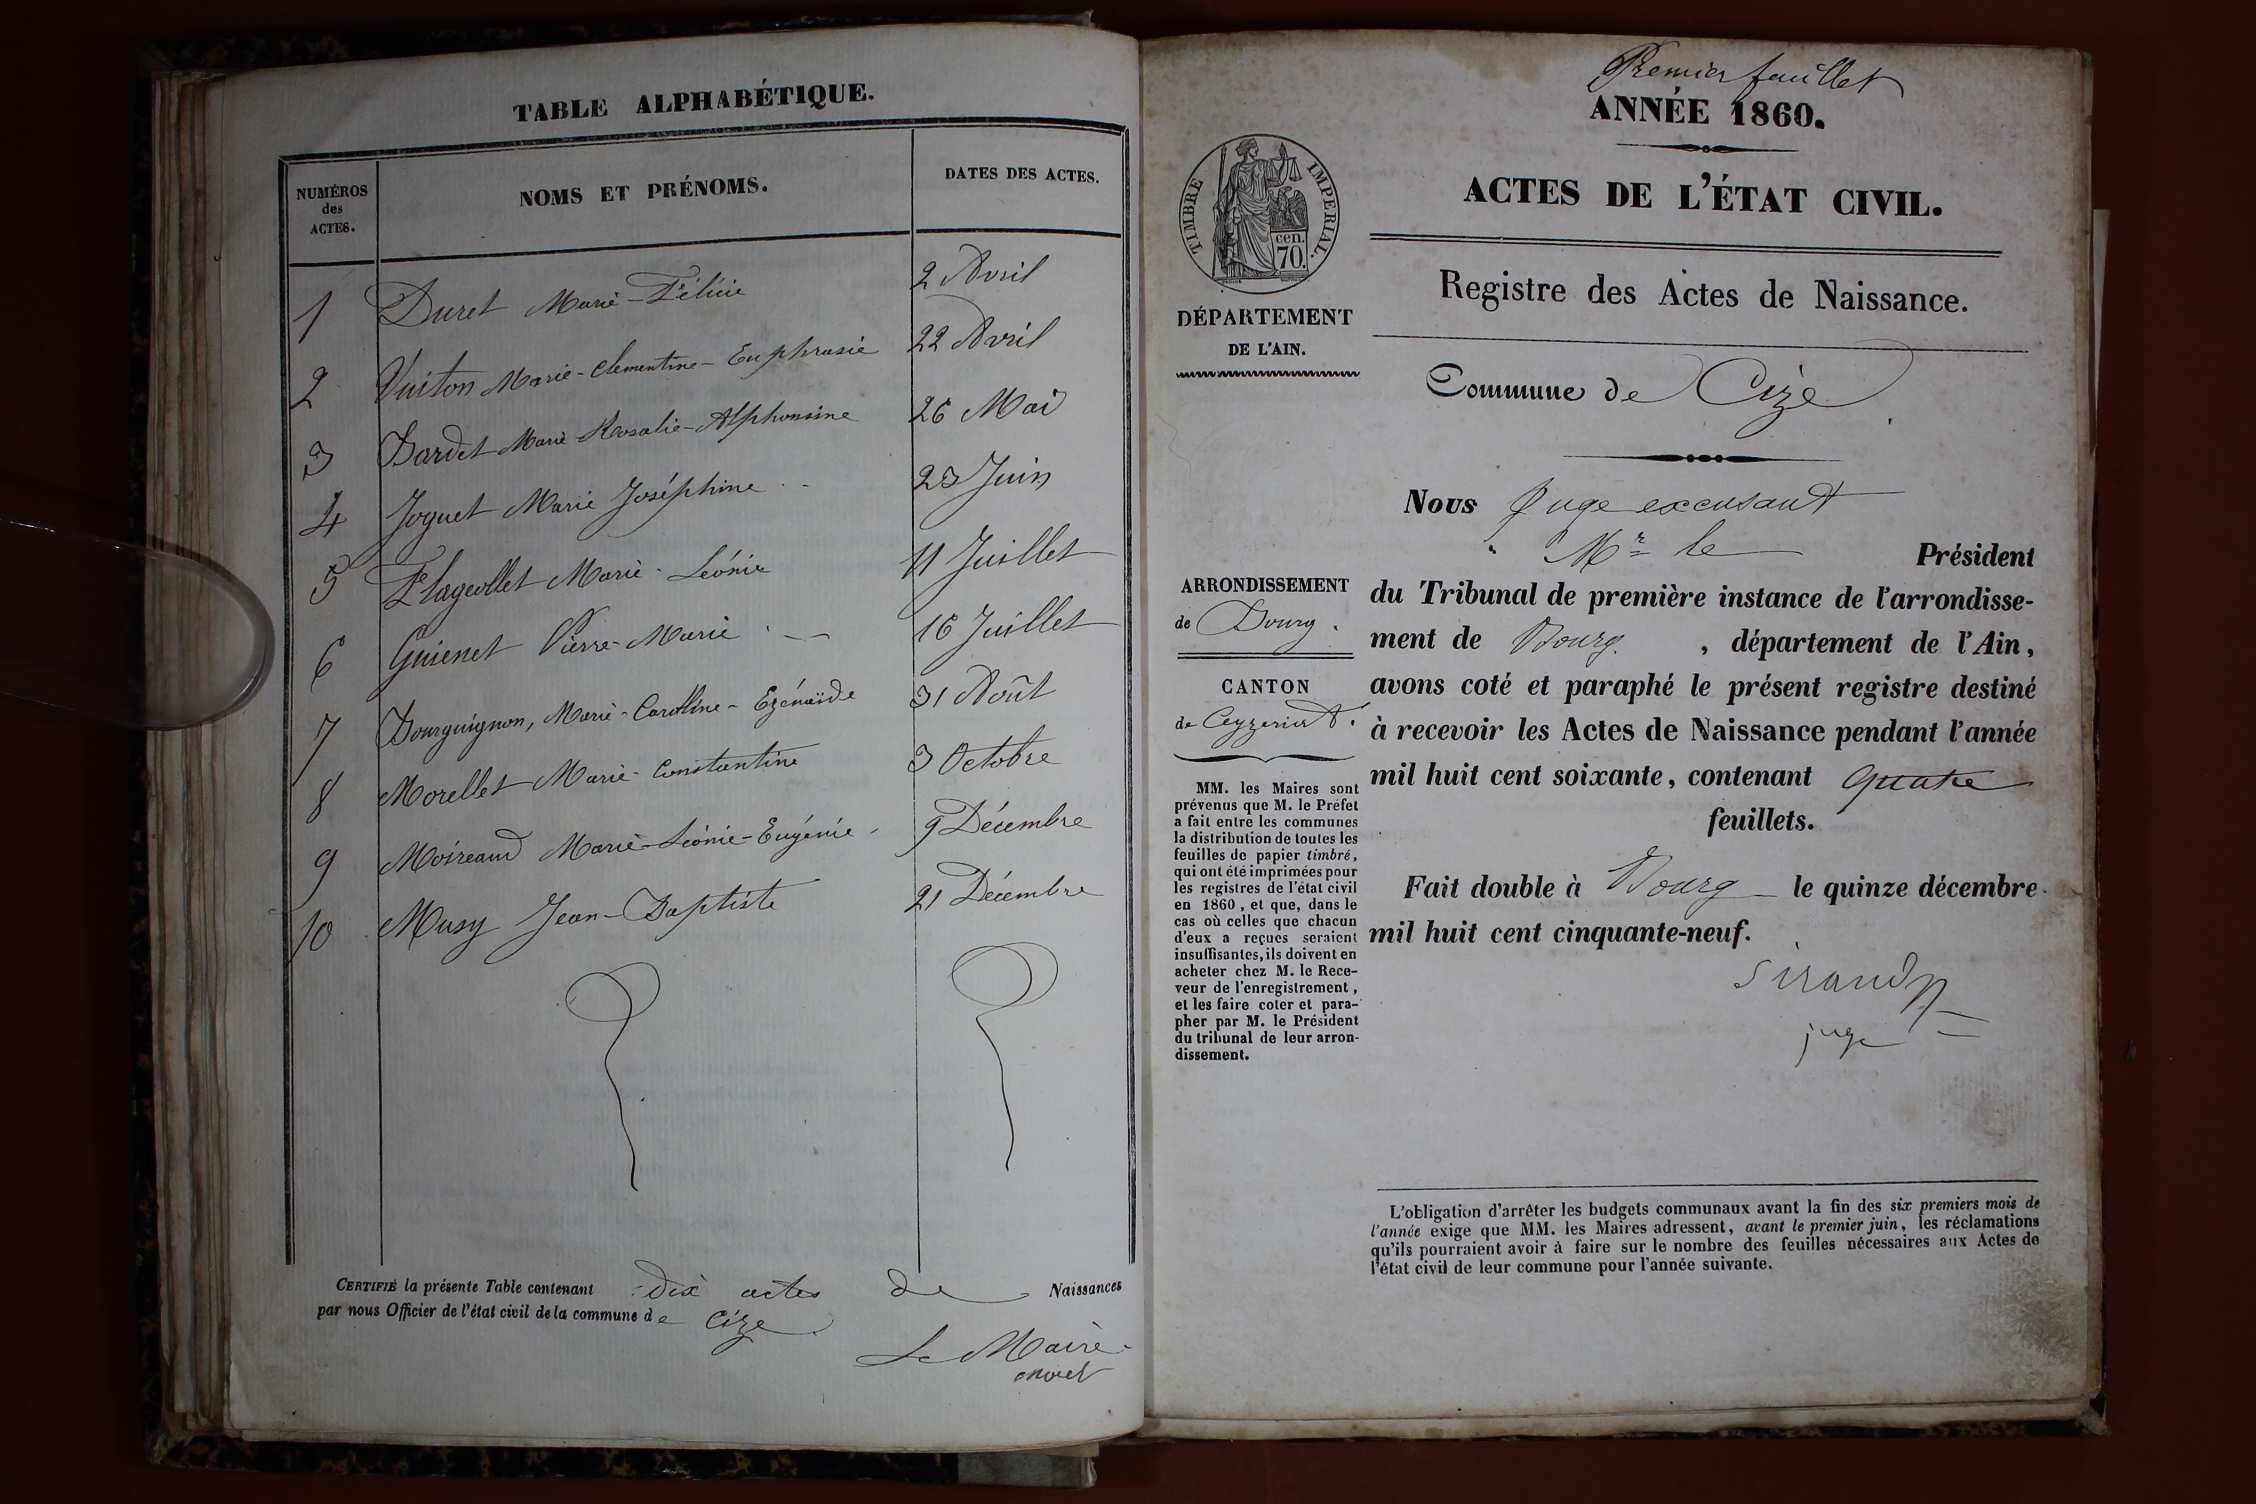 TABLE ALPHABÉTIQUE.
NUMÉROS
des
ACTES.
NOMS ET PRÉNOMS.
DATES DES ACTES.
1 Duret Marie-Félicie 2 Avril
2 Vuiton Marie-Clementine-Euphrasie 22 Avril
3 Bardet Marie Rosalie-Alphonsine 26 Mai
4 Joguet Marie Joséphine 23 Juin
5 Flageollet Marie-Léonie 11 Juillet
6 Guienet Pierre-Marie 16 Juillet
7 Bourguignon, Marie-Carolline-Ezénaïde 31 Août
8 Morellet Marie-Constantine 3 Octobre
9 Moireaud Marie-Léonie-Eugénie 9 Décembre
10 Musy Jean-Baptiste 21 Décembre
CERTIFIÉ la présente Table contenant dix actes de Naissances
par nous Officier de l'état civil de la commune de Cize
Le Maire
Premier feuillet
ANNÉE 1860.
ACTES DE L'ÉTAT CIVIL.
TIMBRE IMPERIAL.
cen.
70.
Registre des Actes de Naissance.
DÉPARTEMENT
DE L'AIN.
Commune de Cize
Nous Juge excusant
Mr le Président
du Tribunal de première instance de l'arrondisse-
ment de Bourg, département de l'Ain,
avons coté et paraphé le présent registre destiné
à recevoir les Actes de Naissance pendant l'année
mil huit cent soixante, contenant quatre
feuillets.
Fait double à Bourg le quinze décembre
mil huit cent cinquante-neuf.
Sirand
juge
ARRONDISSEMENT
de Bourg.
CANTON
de Ceyzeriat.
MM. les Maires sont
prévenus que M. le Préfet
a fait entre les communes
la distribution de toutes les
feuilles de papier timbré,
qui ont été imprimées pour
les registres de l'état civil
en 1860, et que, dans le
cas où celles que chacun
d'eux a reçues seraient
insuffisantes, ils doivent en
acheter chez M. le Rece-
veur de l'enregistrement,
et les faire coter et para-
pher par M. le Président
du tribunal de leur arron-
dissement.
L'obligation d'arrêter les budgets communaux avant la fin des six premiers mois de
l'année exige que MM. les Maires adressent, avant le premier juin, les réclamations
qu'ils pourraient avoir à faire sur le nombre des feuilles nécessaires aux Actes de
l'état civil de leur commune pour l'année suivante.